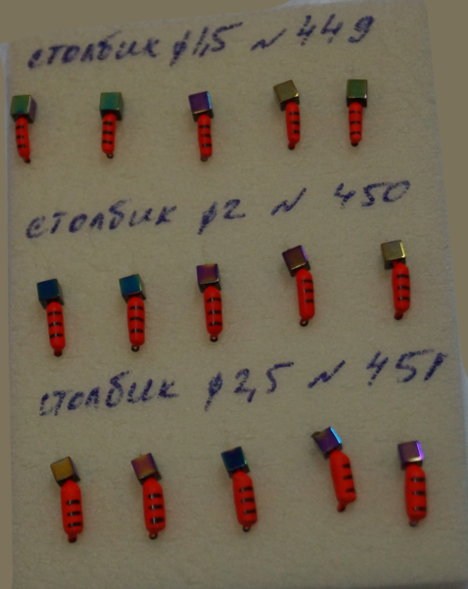 столбик ф1,5 N 449
столбик ф2 N 450
столбик ф2,5 N 451